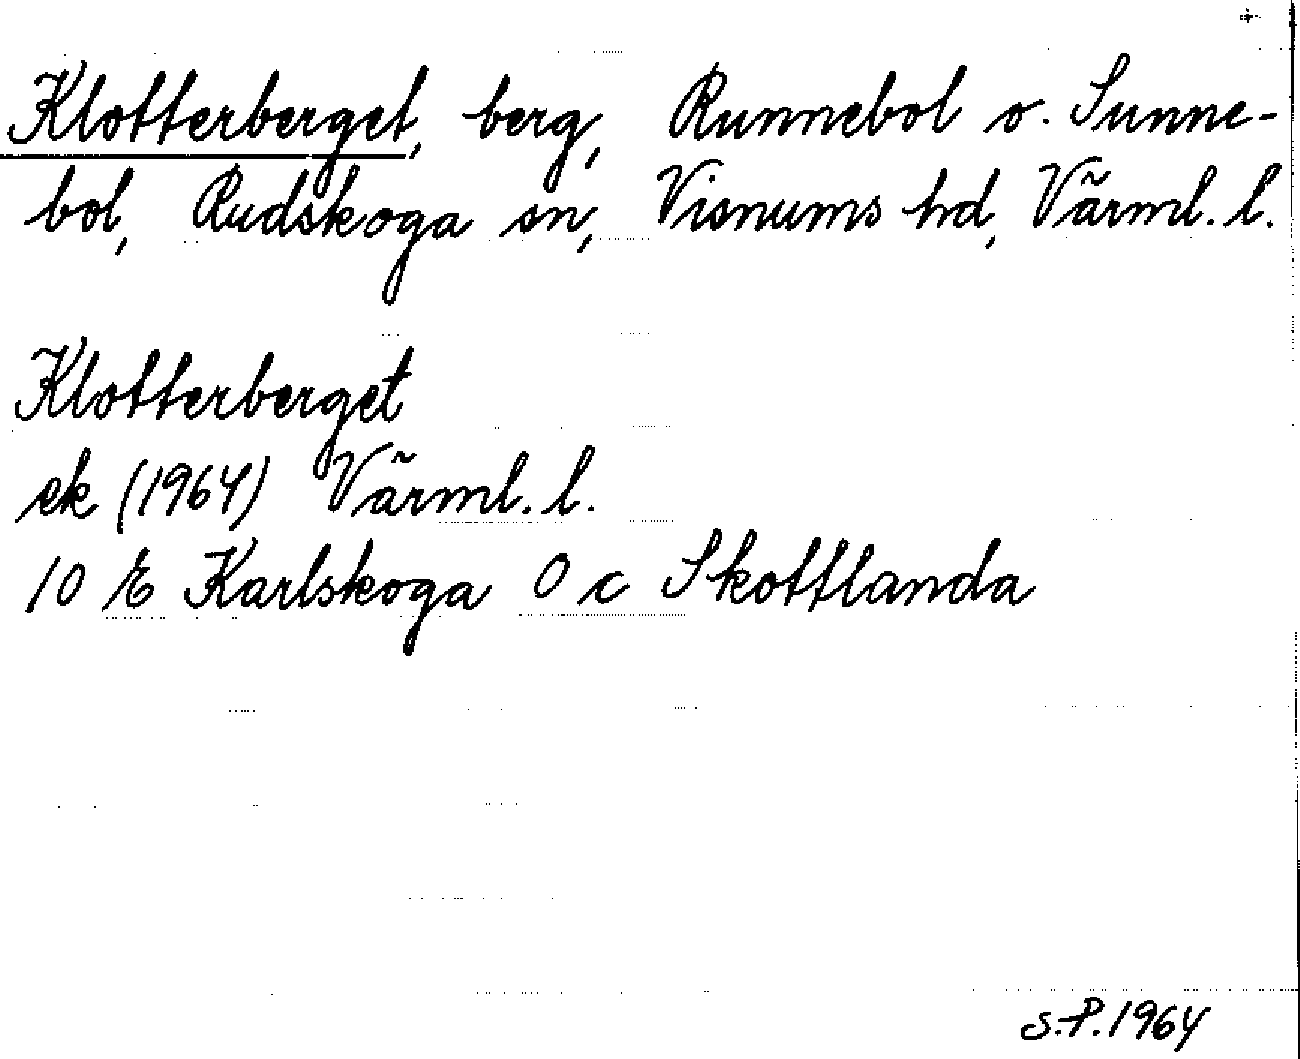 Klotterberget, berg, Runnebol o. Sunne-
bol, Rudskoga sn, Visnums hd, Värml. l.
Klotterberget
ek (1964) Värml. l.
10 E Karlskoga 0 c Skottlanda
S.P. 1964